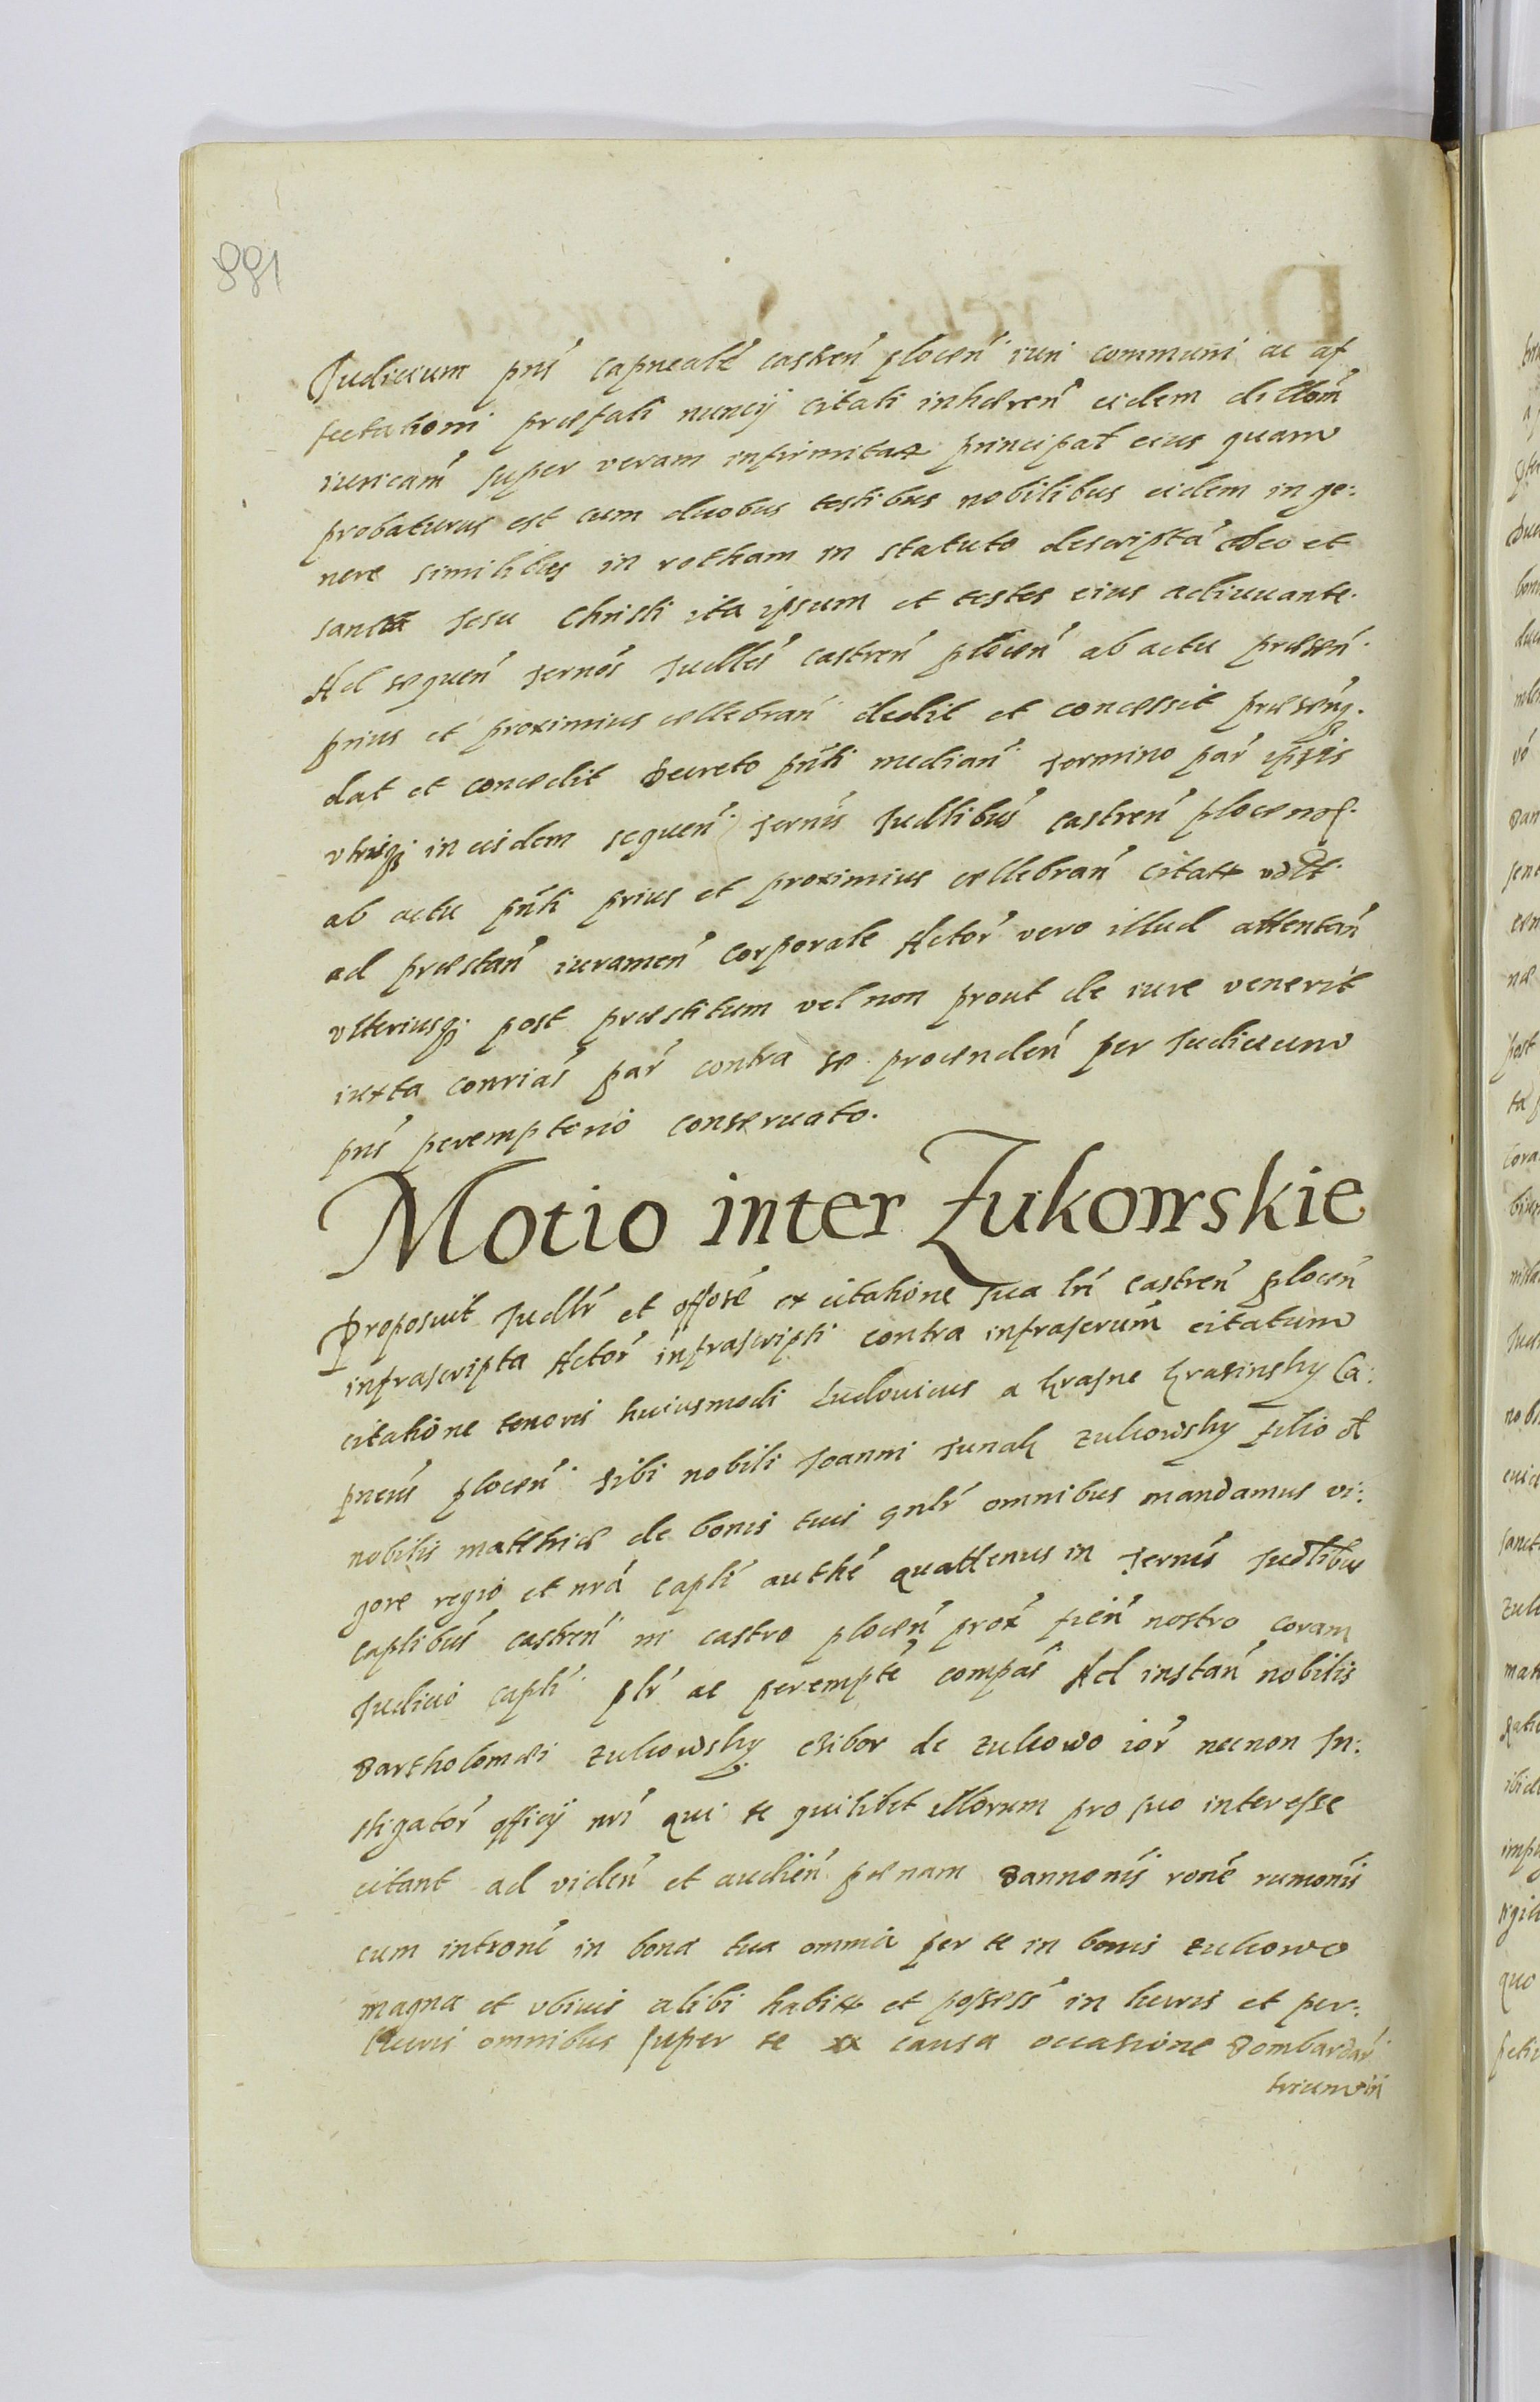 881
Judicium pns̃ capnealẽ castreñ plocen̄ iuri communi ac af
fectationi præfati nuncij citati inhæren̄ eidem dillom̄
iuricam̄ super veram infirmitatẽ principał eius quam
probaturus est cum duobus testibus nobilibus eidem in ge:
nere similibus in rotham in statuto descriptã deo et
sancta Jesu Christi ita ipsum et testes eius adiuuante.
Ad sequen̄ ternos̄ Judłles̄ castren̄ plocen̄ ab actu præsen̄.
prius et proximius cellebran̄ dedit et concessit præsenq̨.
dat et concedit Decreto pñti median̄ termino par̄ ipsis
vtrisq̨ in eisdem sequen̄ ternis̄ Judłlibus̄ castren̄ plocenσ.
ab actu pñti prius et proximius cellebran̄ citatẽ
ad præstan̄ iuramen̄ corporale Actor̄ vero illud attentan̄
vlteriusq̨ post præstitum vel non prout de iure venerit
iuxta conrias̄ par̄ contra se procenden̄ per Judicium
pns̄ peremptorio conseruato.
Motio inter Zukowskie
Proposuit Judłr̄ et offose̅ ex citatione sua lrī castren̄ plocen̄
infrascripta Actor̄ infrascripti contra infrascrum̄ citatum
citatione tenoris huiusmodi Ludouicus a Krasne Krasinsky Ca:
pneus̄ plocen̄ tibi nobili Joanni Junak Zukowsky filio ol
nobilis matthiæ de bonis tuis gnłr̄ omnibus mandamus vi:
gore regio et nrā caplī authe̅ quattenus in ternis̄ Judłlibus
caplibus̄ castren̄ in castro plocen̄ prox̄ fien̄ nostro coram
Judicio caplī płr̄ ac perempte̅ compas̄ Ad instan̄ nobilis
Bartholomæi Zukowsky Czibor de Zukowo ior̄ necnon In:
stigator̄ officij nrī qui te quilibet illorum pro suo interesse
citant ad viden̄ et audien̄ pænam Bannonis̄ rone̅ rumonis̄
cum introne̅ in bona tua omnia per te in bonis Zukowo
magna et vbiuis alibi habitẽ et possess̄ in lucris et per:
lucris omnibus super te ex causa occasione Bombardar̄
triumviri